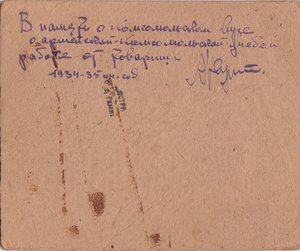 В память о комсомольском вузе
о армейской-комсомольской учебе и
работе от товарища
1934-35 уч. год